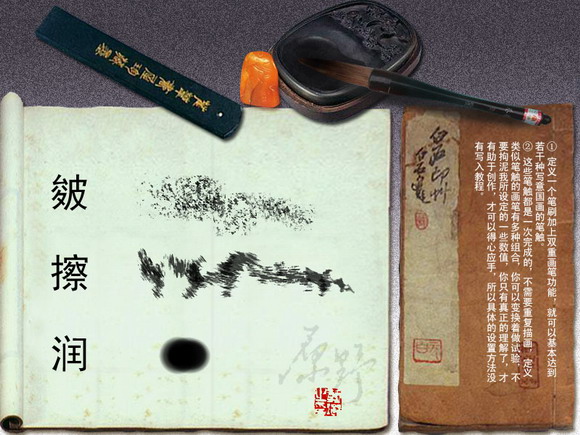 皴
擦
润
原野
① 定义一个笔刷加上双重画笔功能，就可以基本达到
若干种写意国画的笔触。
② 这些笔触都是一次完成的，不需要重复描画，定义
类似笔触的画笔有多种组合，你可以变换着做试验，不
要拘泥我所设定的一些数值，你只有真正的理解了，才
有助于创作，才可以得心应手，所以具体的设置方法没
有写入教程。